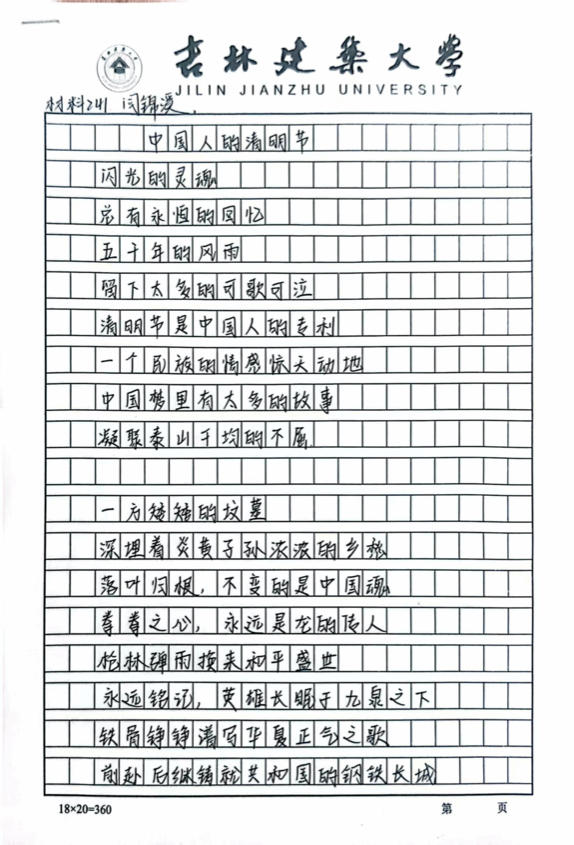 吉林建築大学
JILIN JIANZHU UNIVERSITY
材料241 闫锦
中国人的清明节
闪光的灵魂
总有永恒的回忆
五千年的风雨
留下太多的可歌可泣
清明节是中国人的专利
一个民族的情感惊天动地
中国梦里有太多的故事
凝聚泰山千均的不屈
一方矮矮的坟墓
深埋着炎黄子孙浓浓的乡愁
落叶归根，不变的是中国魂
拳拳之心，永远是龙的传人
枪林弹雨换来和平盛世
永远铭记，英雄长眠于九泉之下
铁骨铮铮谱写华夏正气之歌
前赴后继铸就共和国的钢铁长城
18×20=360 第 页